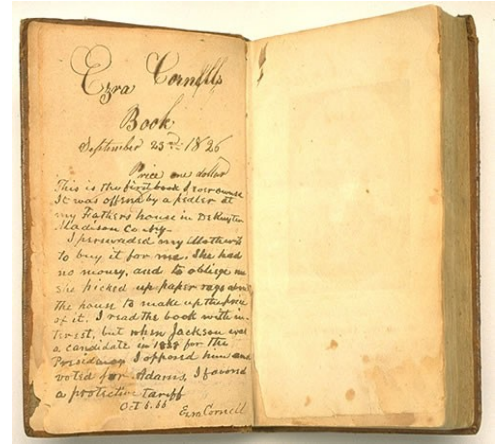 Ezra Cornell's
Book
September 23rd 1826
Price one dollar
This is the first book I ever owned
It was offered by a pedler at
my Fathers house in DeRuyter
Madison Co NY-
I persuaded my Mother
to buy it for me. She had
no money, and to oblige me
she picked up paper rags about
the house to make up the price
of it. I read the book with in-
terest, but when Jackson was
a candidate in 1828 for the
Presidency I opposed him and
voted for Adams, I favored
a protective tariff
Oct 6. 66
Ezra Cornell